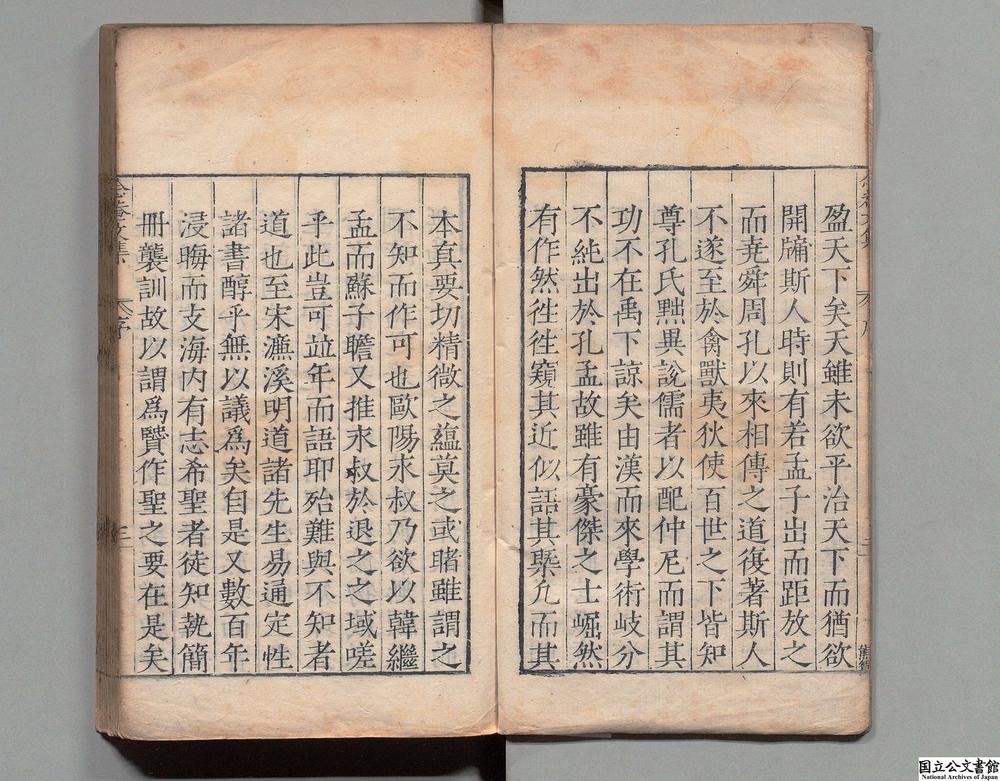 盈天下矣天雖未欲平治天下而猶欲
開牖斯人時則有若孟子出而距放之
而堯舜周孔以來相傳之道復著斯人
不遂至於禽獸夷狄使百世之下皆知
尊孔氏黜異說儒者以配仲尼而謂其
功不在禹下諒矣由漢而來學術岐分
不純出於孔孟故雖有豪傑之士崛然
有作然徃徃窺其近似語其槩凢而其
本真要切精微之蘊莫之或睹雖謂之
不知而作可也歐陽永叔乃欲以韓繼
孟而蘇子瞻又推永叔於退之之域嗟
乎此豈可竝年而語耶殆難與不知者
道也至宋濂溪明道諸先生易通定性
諸書醇乎無以議爲矣自是又數百年
浸晦而支海内有志希聖者徒知執簡
冊襲訓故以謂爲贒作聖之要在是矣
念菴文集
序
三
国立公文書館
National Archives of Japan